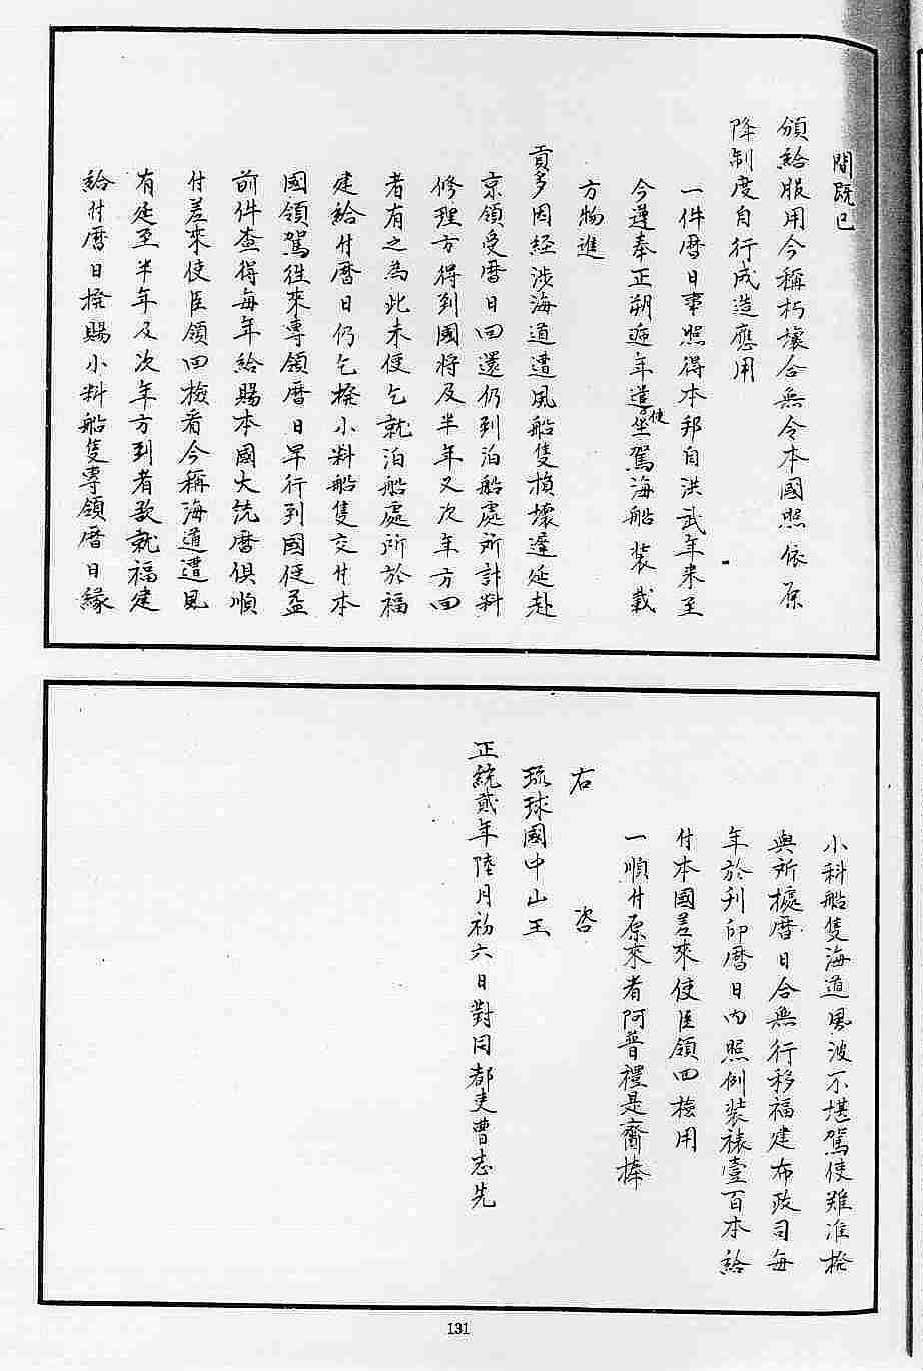 間既已
頒給服用今稱朽壞合無令本國照依原
降制度自行成造應用
一件曆日事照得本邦自洪武年來至
今遵奉正朔逓年遣使坐駕海船裝載
方物進
貢多因経涉海道遭風船隻損壞遲延赴
京領受曆日回還仍到泊船處所計料
修理方得到國將及半年又次年方回
者有之為此未便乞就泊船處所於福
建給付曆日仍乞撥小料船隻交付本
國領駕徃來專領曆日早行到國便益
前件查得每年給賜本國大統曆俱順
付差來使臣領回檢看今稱海道遭風
有延至半年及次年方到者欲就福建
給付曆日撥賜小料船隻專領曆日縁
小科船隻海道風波不堪駕使難准撥
與所據曆日合無行移福建布政司每
年於刋印曆日內照例裝裱壹百本給
付本國差來使臣領回檢用
一順付原來者阿普禮是齎捧
右　咨
琉球國中山王
正統貳年陸月初六日對同都吏曹志先
131